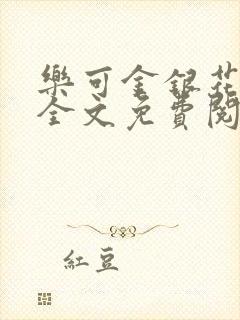 樂可金銀花
全文免費閱
紅豆